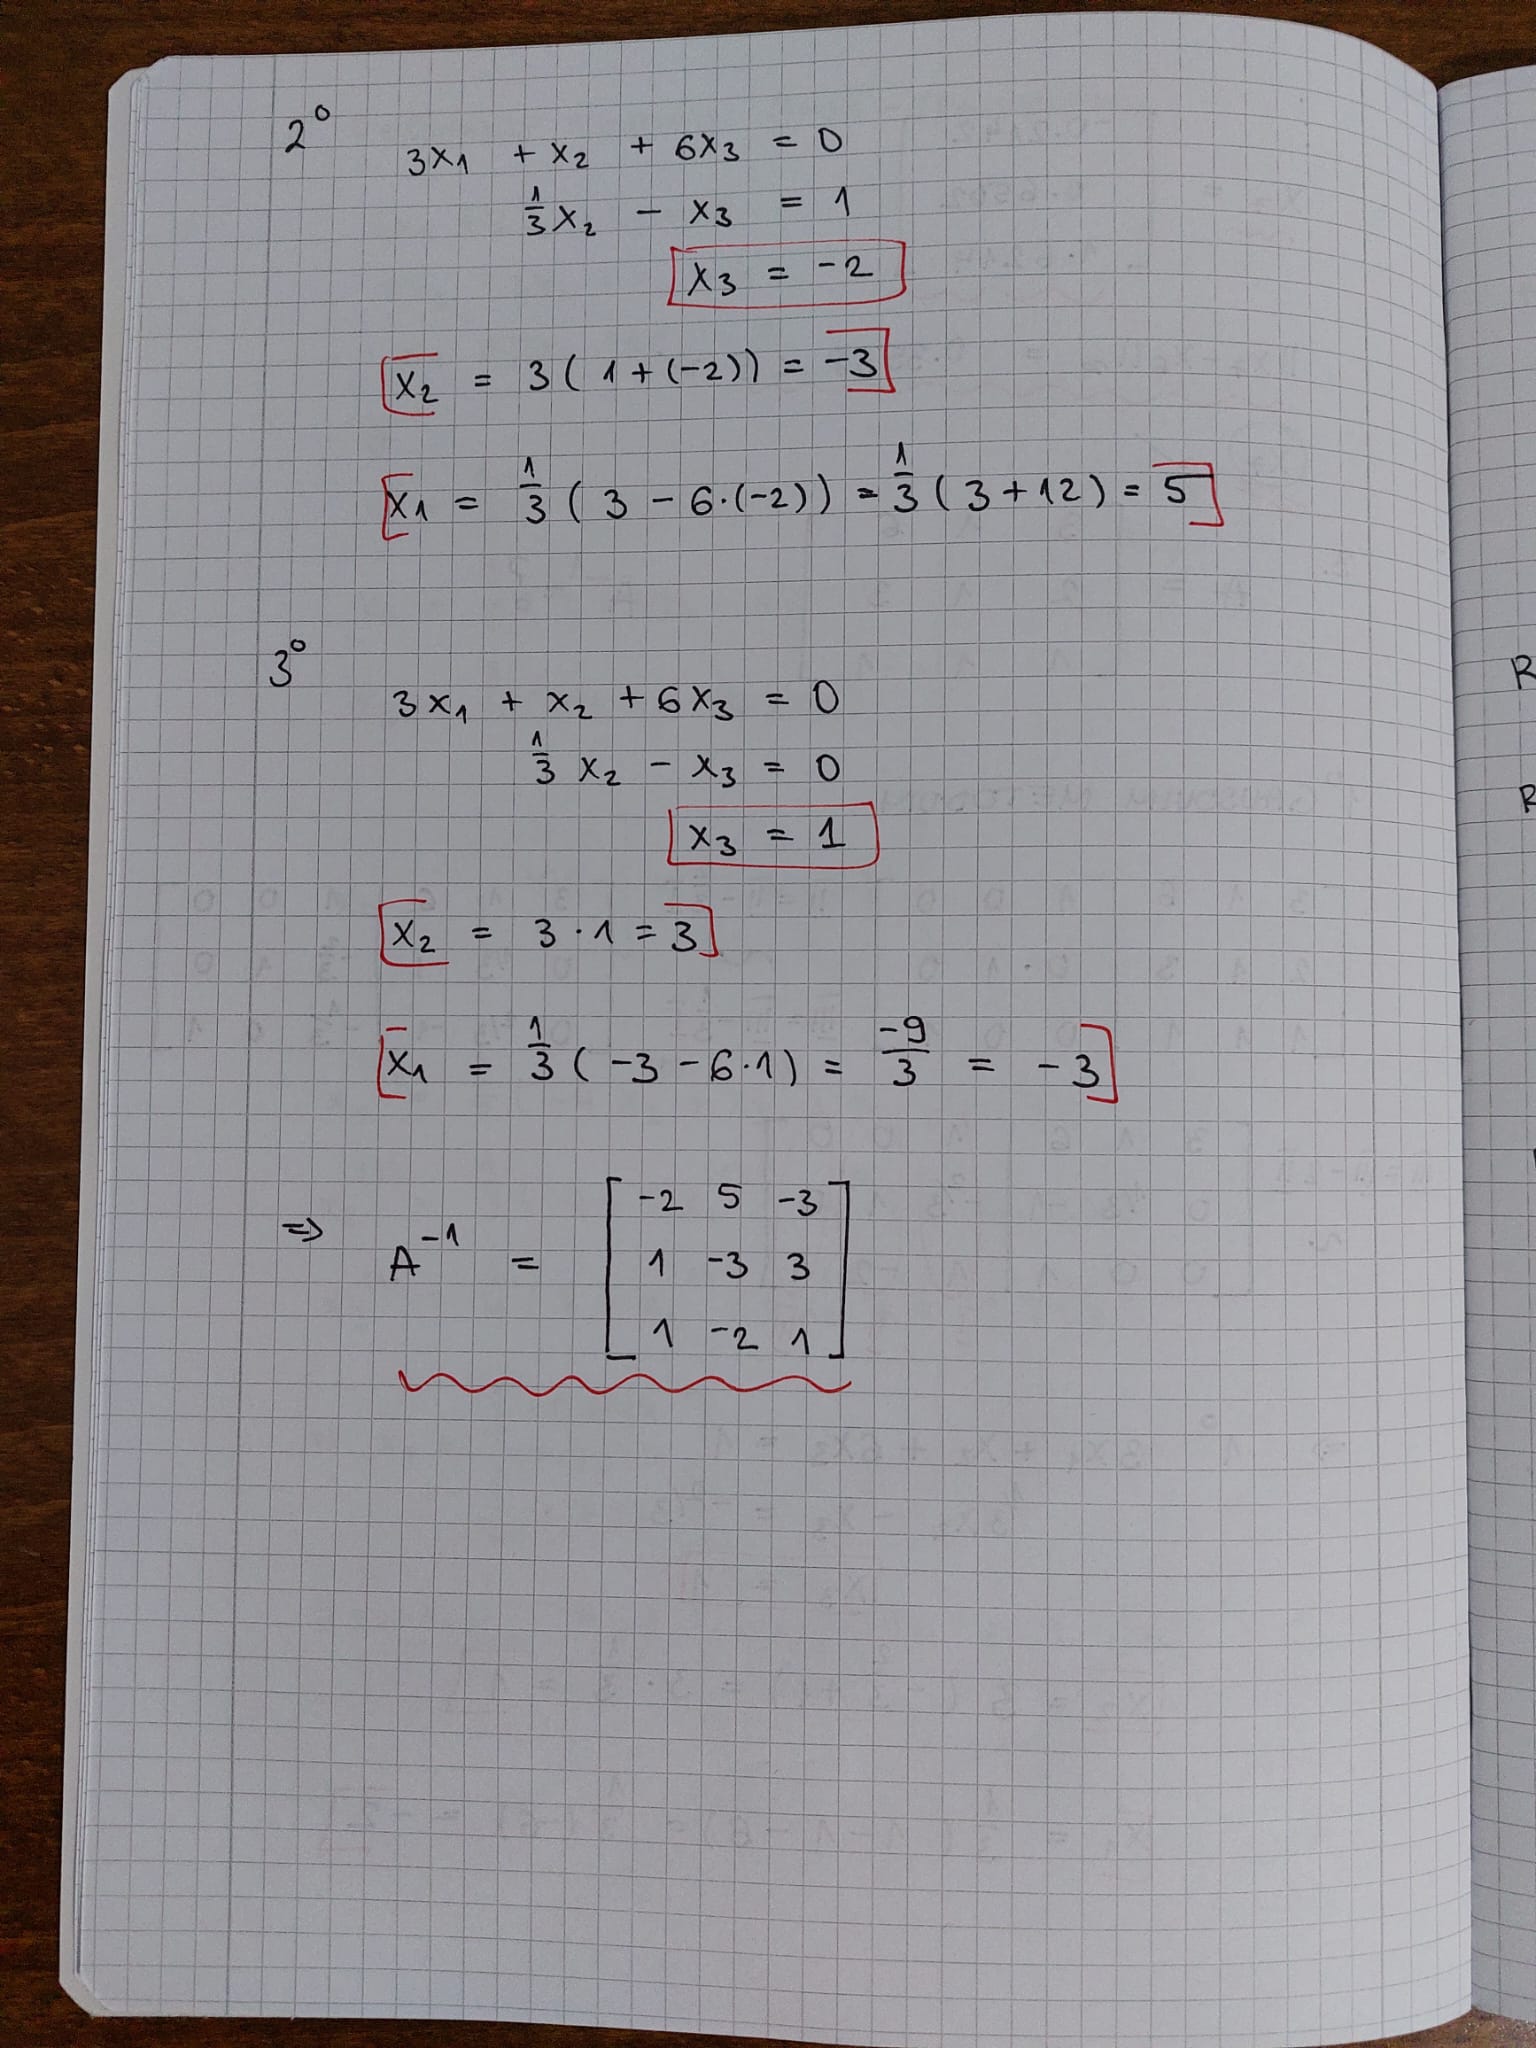 2⁰
3x₁ + x₂ + 6x₃ = 0
1/3 x₂ - x₃ = 1
x₃ = -2
x₂ = 3(1+(-2)) = -3
x₁ = 1/3 (3 - 6·(-2)) = 1/3 (3+12) = 5
3⁰
3x₁ + x₂ + 6x₃ = 0
1/3 x₂ - x₃ = 0
x₃ = 1
x₂ = 3·1 = 3
x₁ = 1/3 (-3 - 6·1) = -9/3 = -3
⇒ A⁻¹ =
-2 5 -3
1 -3 3
1 -2 1
R
R